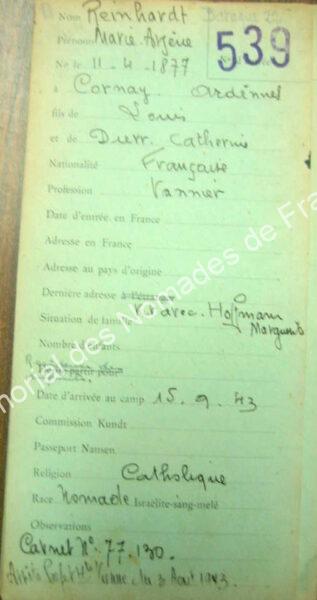 Nom Reinhardt Baraque 29
Prénoms Marie Arsène 539
Né le 11-4-1877
à Cornay Ardennes
fils de Louis
et de Durr. Catherine
Nationalité Française
Profession Vannier
Date d'entrée en France
Adresse en France
Adresse au pays d'origine
Dernière adresse à l'étranger
Situation de famille V. avec. Hoffmann
Marguerite
Nombre d'enfants
Date d'arrivée au camp 15.9.43
Commission Kundt
Passeport Nansen
Religion Catholique
Race Nomade Israélite-sang-mêlé
Observations
Carnet N° 77.130.
Arrêté Préfet Hte Vienne du 3 Août 1943.
morial des Nomades de Fra